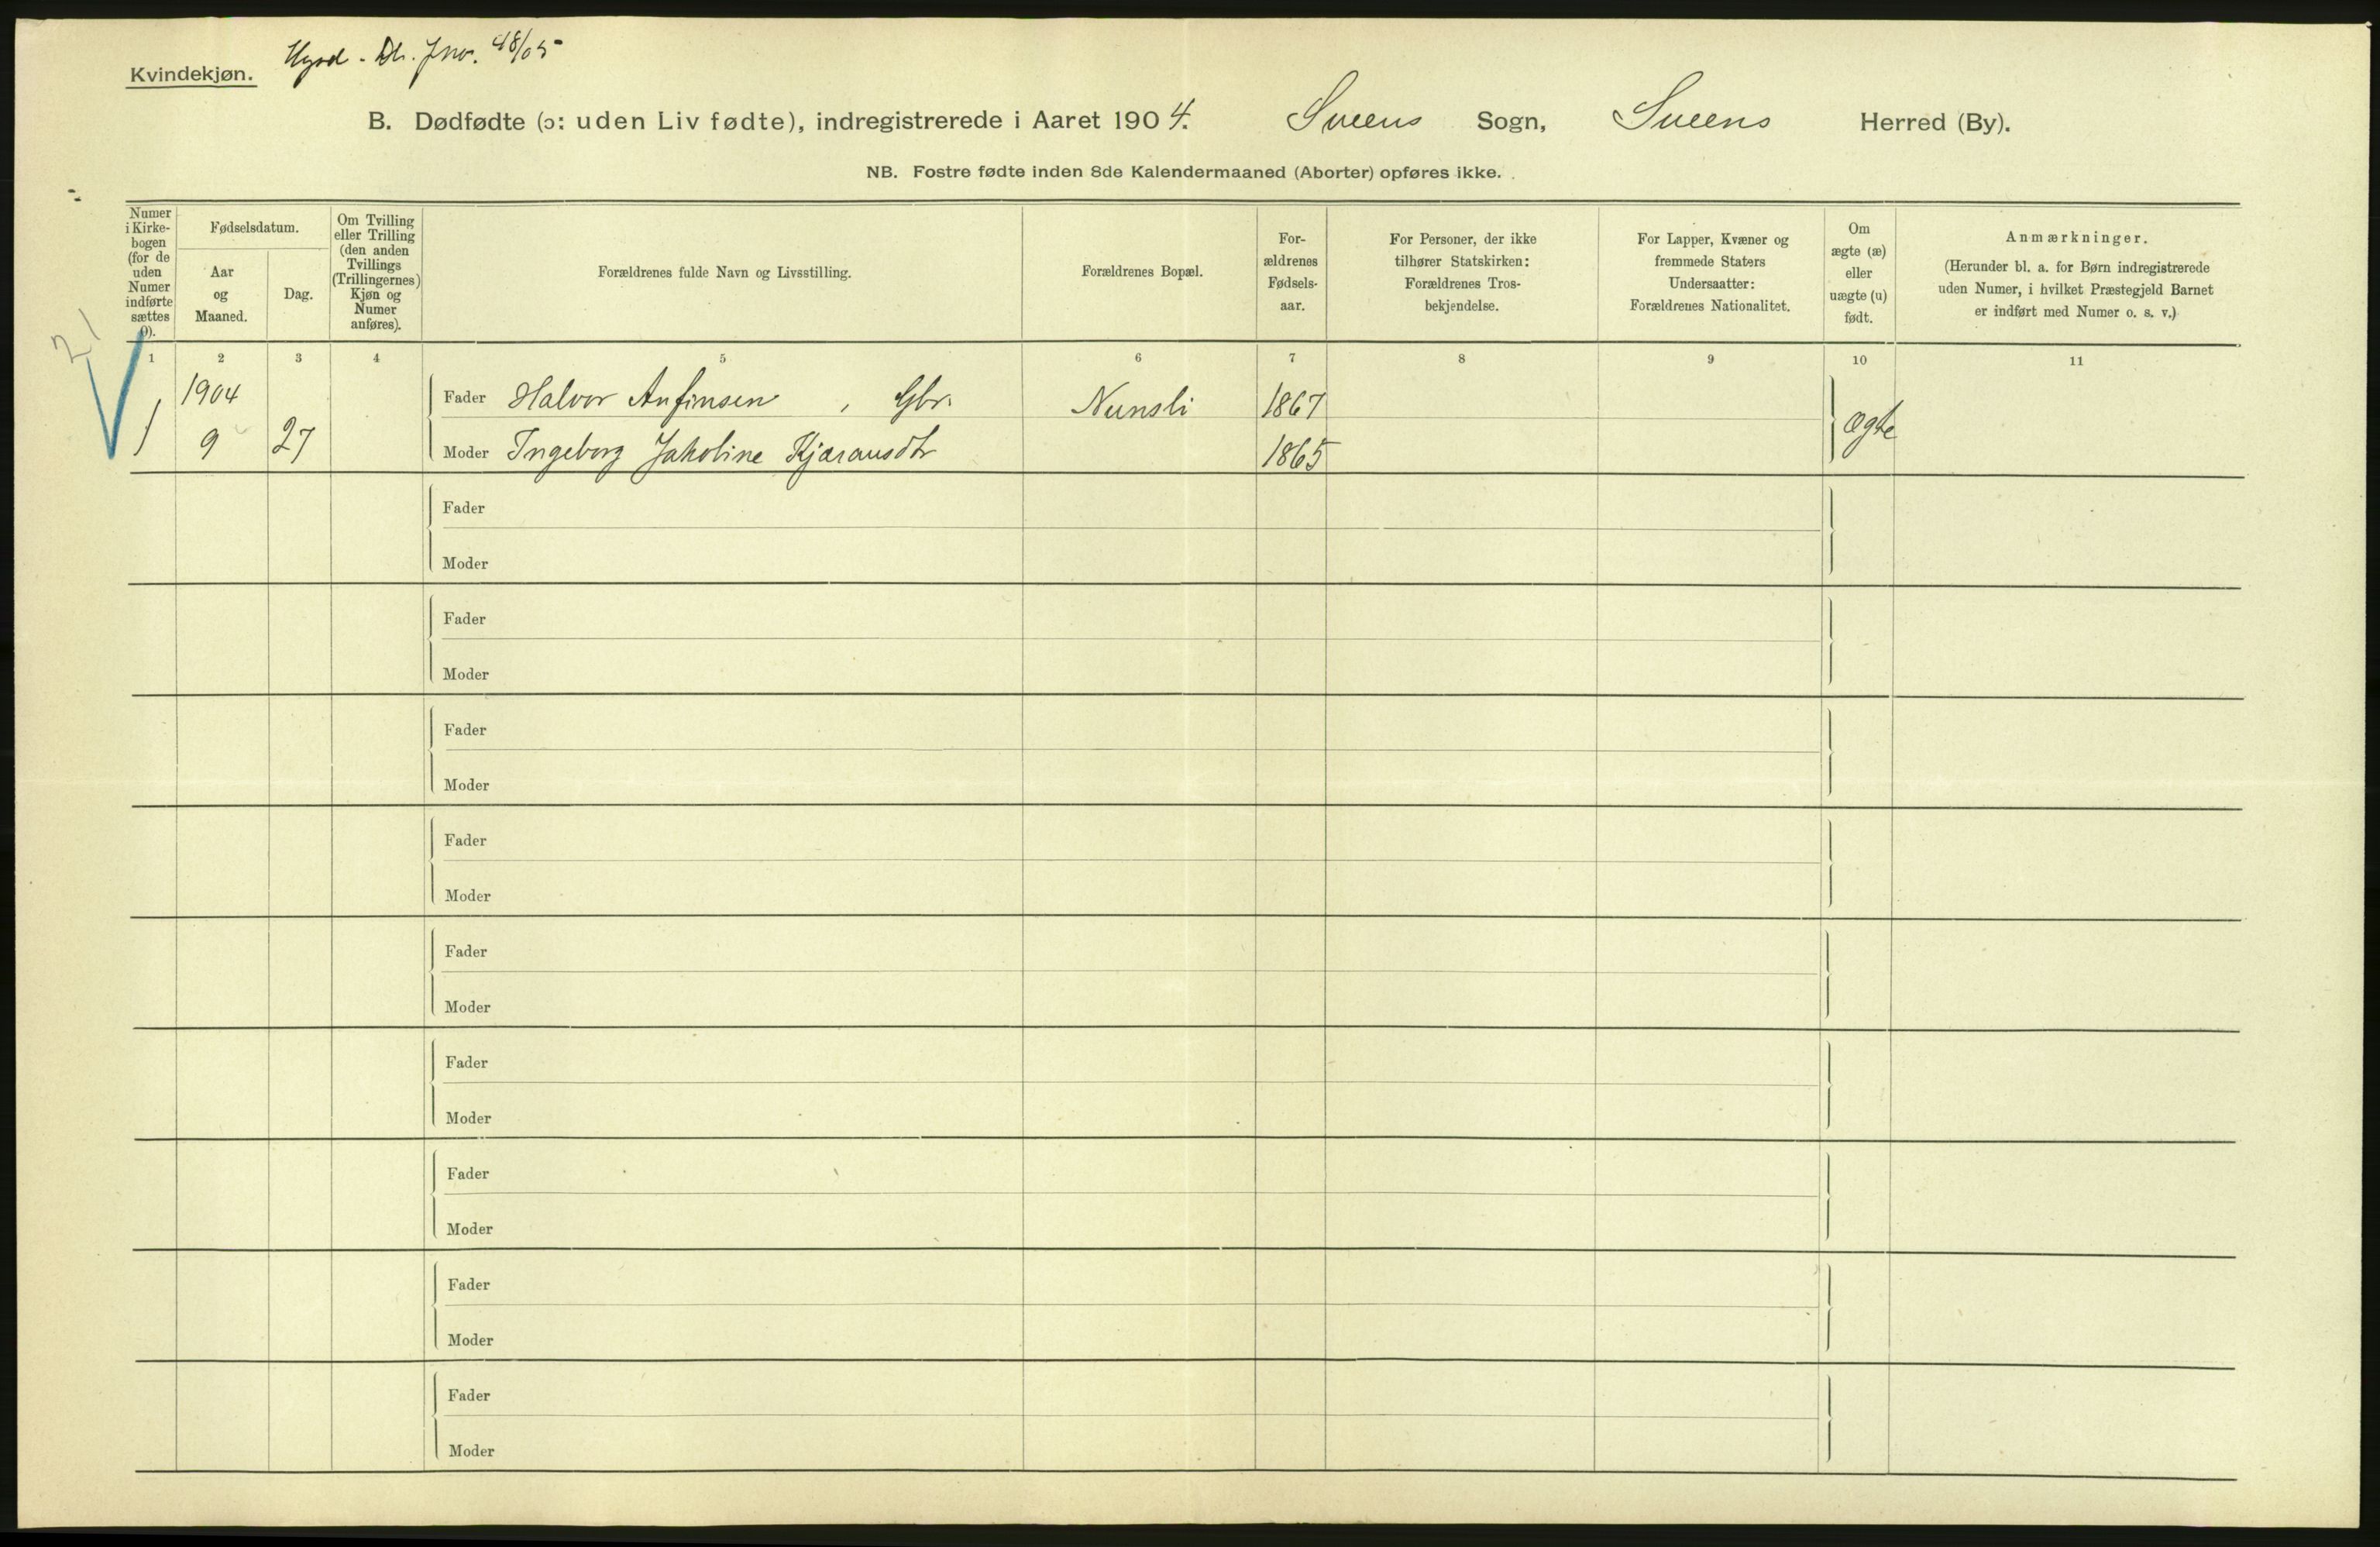 Kvindekjøn.
Jno. 48/05
B. Dødfødte (ɔ: uden Liv fødte), indregistrerede i Aaret 1904. Sveens Sogn, Sveens Herred (By).
NB. Fostre fødte inden 8de Kalendermaaned (Aborter) opføres ikke.
Numer
i Kirke-
bogen
(for de
uden
Numer
indførte
sættes
0).
Fødselsdatum.
Aar
og
Maaned.
Dag.
Om Tvilling
eller Trilling
(den anden
Tvillings
(Trillingernes)
Kjøn og
Numer
anføres).
Forældrenes fulde Navn og Livsstilling.
Forældrenes Bopæl.
For-
ældrenes
Fødsels-
aar.
For Personer, der ikke
tilhører Statskirken:
Forældrenes Tros-
bekjendelse.
For Lapper, Kvæner og
fremmede Staters
Undersaatter:
Forældrenes Nationalitet.
Om
ægte (æ)
eller
uægte (u)
født.
Anmærkninger.
(Herunder bl. a. for Børn indregistrerede
uden Numer, i hvilket Præstegjeld Barnet
er indført med Numer o. s. v.)
21
1 2 3 4 5 6 7 8 9 10 11
1904 Fader Halvor Anfinsen, Gbr. Nunsli 1867
1 9 27 Moder Ingeborg Jakoline Kjæransdtr 1865 Ægte
Fader
Moder
Fader
Moder
Fader
Moder
Fader
Moder
Fader
Moder
Fader
Moder
Fader
Moder
Fader
Moder
Fader
Moder